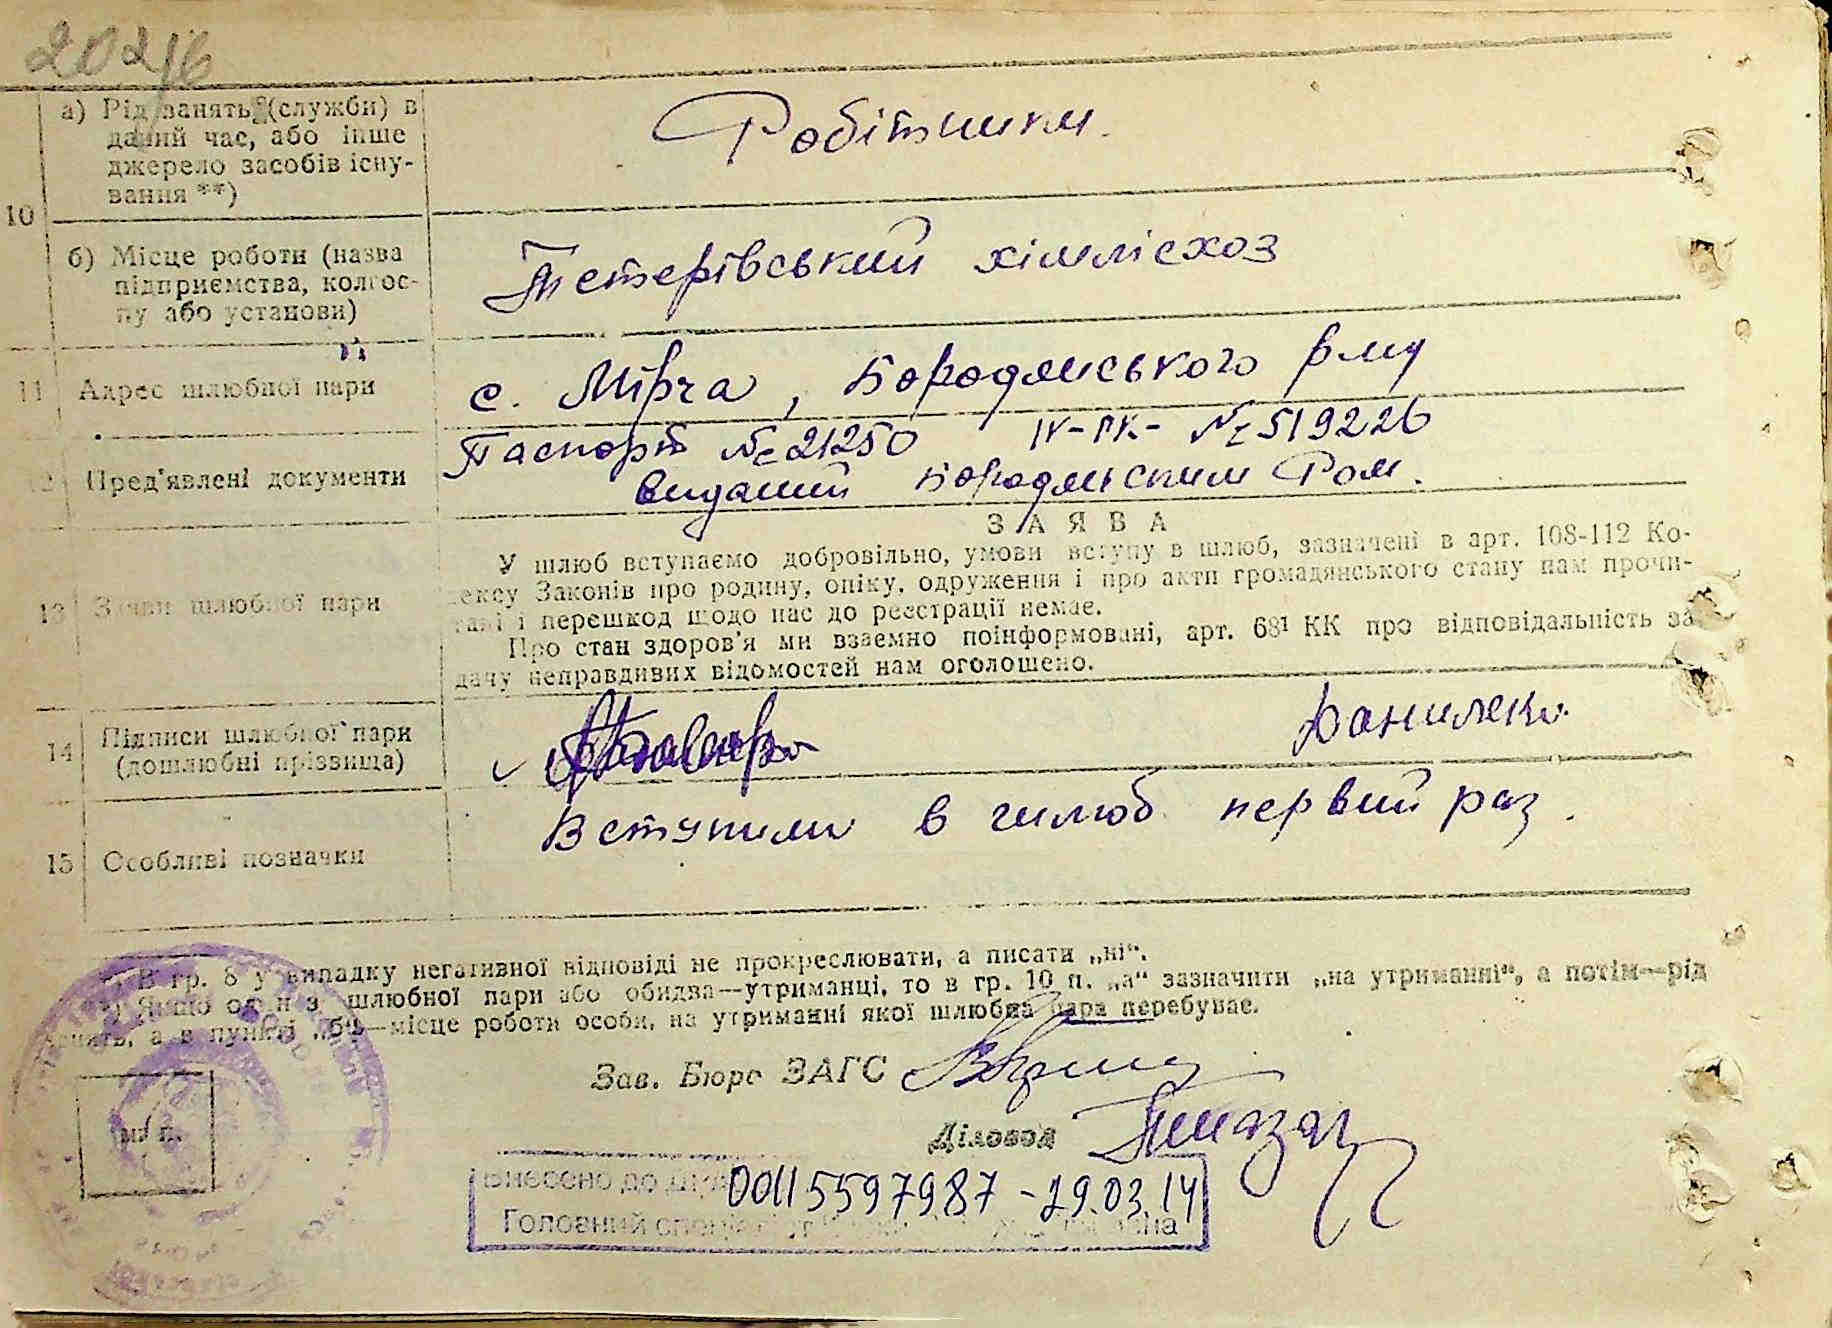 202/6
10
а) Рід занять (служби) в
даний час, або інше
джерело засобів існу-
вання **)
Робітники.
б) Місце роботи (назва
підприємства, колгос-
пу або установи)
Тетерівський хімлісхоз
11 Адрес шлюбної пари
с. Мірча, Бородянського р-ну
12 Пред'явлені документи
Паспорт № 21250 IV-РК- № 519226
виданий Бородянським Ром.
13 Заяви шлюбної пари
ЗАЯВА
У шлюб вступаємо добровільно, умови вступу в шлюб, зазначені в арт. 108-112 Ко-
дексу Законів про родину, опіку, одруження і про акти громадянського стану нам прочи-
тані і перешкод щодо нас до реєстрації немає.
Про стан здоров'я ми взаємно поінформовані, арт. 68¹ КК про відповідальність за
дачу неправдивих відомостей нам оголошено.
14 Підписи шлюбної пари
(дошлюбні прізвища)
15 Особливі позначки
Вступили в шлюб первий раз.
*) В гр. 8 у випадку негативної відповіді не прокреслювати, а писати „ні“.
**) Якщо один з шлюбної пари або обидва—утриманці, то в гр. 10 п. „а“ зазначити „на утриманні“, а потім—рід
занять, а в пункті „б“—місце роботи особи, на утриманні якої шлюбна пара перебуває.
Зав. Бюро ЗАГС
Діловод
м. п.
Внесено до 00115597987 - 29.03.14
Головний